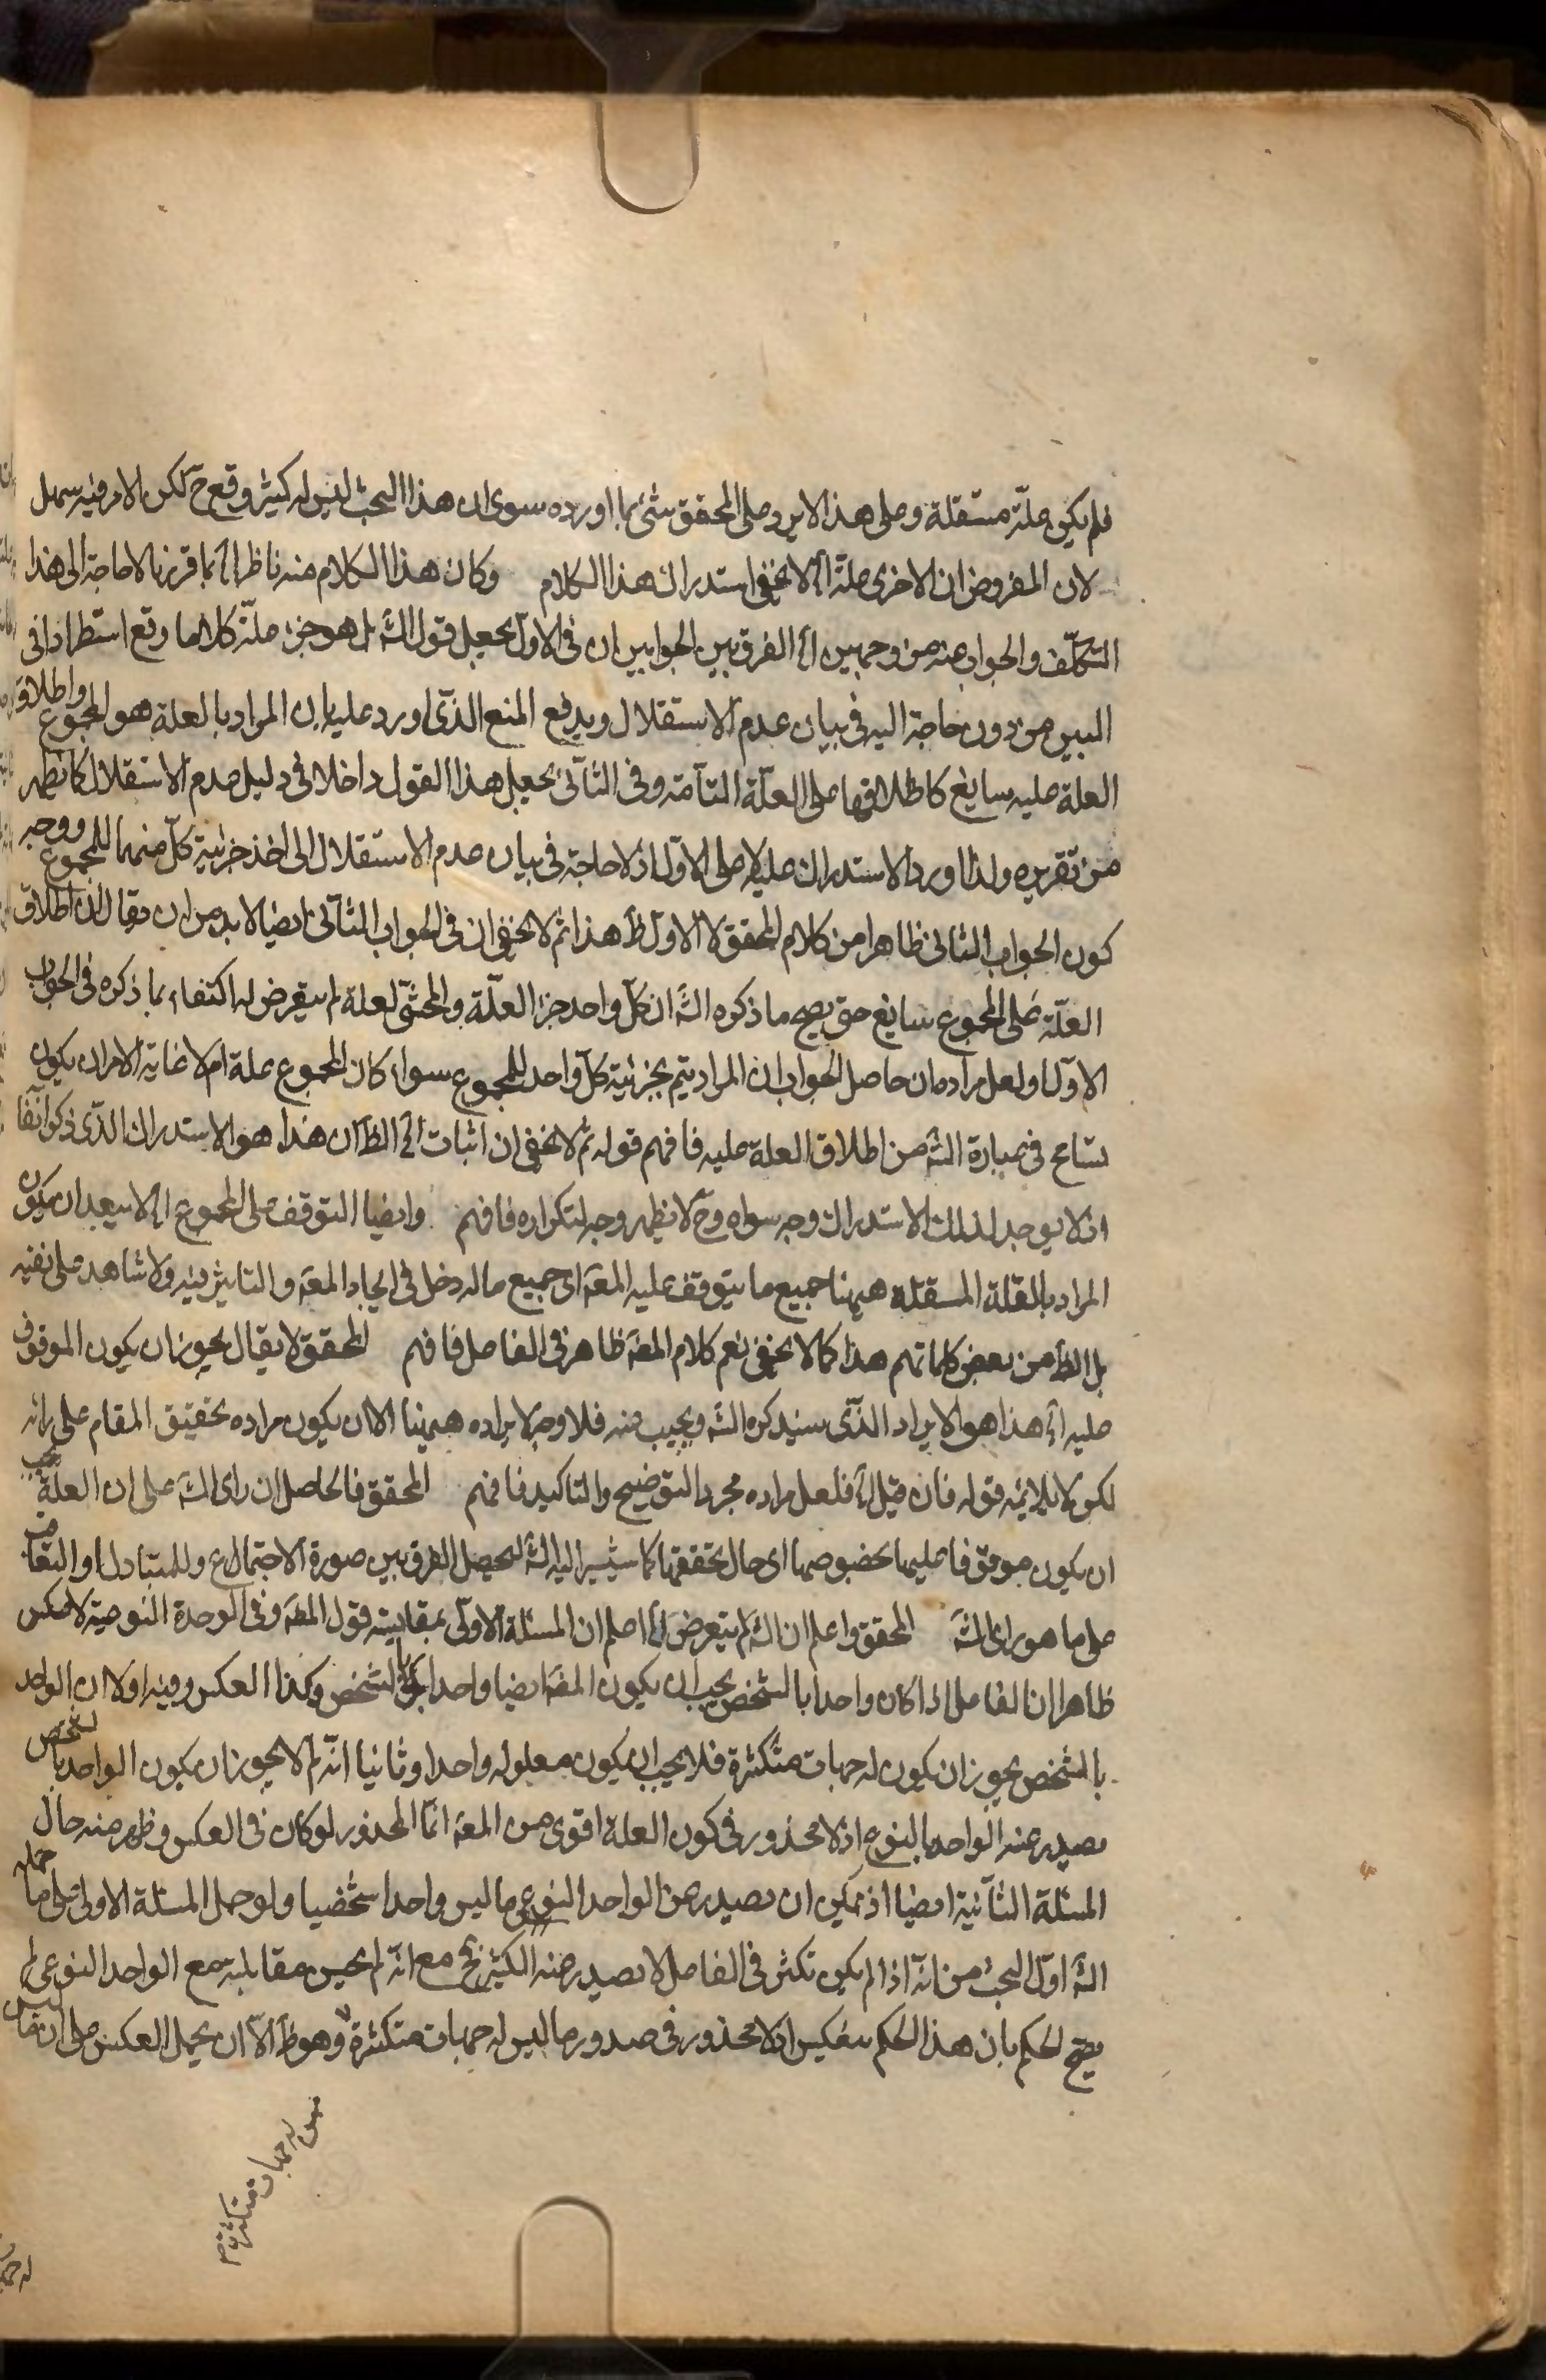 فلم يكن علّة مستقلة وعلى هذا لا يرد على المحقق شئ مما اورده سوى ان هذا البحث ليس له كثير وقع ح لكن الامر فيه سهل
لان المفروض ان الاخرى علة اه لا يخفى استدراك هذا الكلام وكان هذا الكلام منه ناظر الى ما قررنا لا حاجة الى هذا
التكلّف والجواب عنه من وجهين اه الفرق بين الجوابين ان في الاول يجعل قول الش بل هو جزء علّة كلاما وقع استطرادا في
البين من دون حاجة اليه في بيان عدم الاستقلال ويدفع المنع الذي اورد عليه بان المراد بالعلة هو المجموع واطلاق
العلة عليه سايغ كاطلاقها على العلّة التامّة وفي الثاني يجعل هذا القول داخلا في دليل عدم الاستقلال كما يظهر
من تقريره ولذا اورد الاستدراك عليه لا على الاوّل اذ لا حاجة في بيان عدم الاستقلال الى اخذ جزئية كلّ منهما للمجموع ووجه
كون الجواب الثاني ظاهرا من كلام المحقق لا الاول ظ هذا ثم لا يخفى ان في الجواب الثاني ايضا لا بد من ان يقال ان اطلاق
العلّة على المجموع سايغ حتى يصح ما ذكره الش ان كلّ واحد جزء العلّة والمحشّي لعله لم يتعرض له اكتفاء بما ذكره في الجواب
الاول ولعل مراده ان حاصل الجواب ان المراد يتم بجزئية كلّ واحد للمجموع سواء كان المجموع علة ام لا غاية الامر ان يكون
تسامح في عبارة الش من اطلاق العلة عليه فافهم قوله ثم لا يخفى ان اثبات اه الظ ان هذا هو الاستدراك الذي ذكر آنفا
اذ لا يوجد لذلك الاستدراك وجه سواه وح لا يظهر وجه لتكراره فافهم وايضا التوقف على المجموع اه لا يبعد ان يكون
المراد بالعلة المستقلة هيهنا جميع ما يتوقف عليه المعه اى جميع ما له دخل في ايجاد المعه والتاثير فيه ولا شاهد على نفيه
بل الظ من بعض كلماتهم هذا كما لا يخفى نعم كلام المصه ظاهر في الفاعل فافهم المحقق لا يقال يجوز ان يكون الموقوف
عليه اه هذا هو الايراد الذي سيذكره الش ويجيب عنه فلا وجه لايراده هيهنا الا ان يكون مراده تحقيق المقام على رائه
لكن لا يلايمه قوله فان قيل اه فلعل مراده مجرد التوضيح والتاكيد فافهم المحقق فالحاصل ان راى الش على ان العلة يجب
ان يكون موقوفا عليها بخصوصها اى حال تحققها كما سيشير اليه الش ليحصل الفرق بين صورة الاجتماع وللمتبادل او التعاقب
على ما هو راى الش المحقق واعلم ان الش لم يتعرض اه اعلم ان المسئلة الاولى بمقايسة قول المصه وفي الوحدة النوعية لا عكس
ظاهرا ان الفاعل اذا كان واحدا بالشخص يجب ان يكون المعه ايضا واحدا بالشخص وكذا العكس وفيه اولا ان الواحد
بالشخص يجوز ان يكون له جهات متكثرة فلا يجب ان يكون معلوله واحدا وثانيا انّه لم لا يجوز ان يكون الواحد بالشخص
يصدر عنه الواحد بالنوع اذ لا محذور في كون العلة اقوى من المعه انّما المحذور لو كان في العكس وظهر منه حال
المسئلة الثانية ايضا اذ يمكن ان يصدر عن الواحد النوعي ما ليس واحدا شخصيا ولو حمل المسئلة الاولى على ما حمله
الش اوّل البحث من انّه اذا لم يكن تكثر في الفاعل لا يصدر منه الكثير فح مع انّه لم يحسن مقابلته مع الواحد النوعي لم
يصح الحكم بان هذا الحكم ينعكس اذ لا محذور في صدور ما ليس له جهات متكثرة وهو ظ الّا ان يحمل العكس على ان ما ليس
له جهات متكثرة